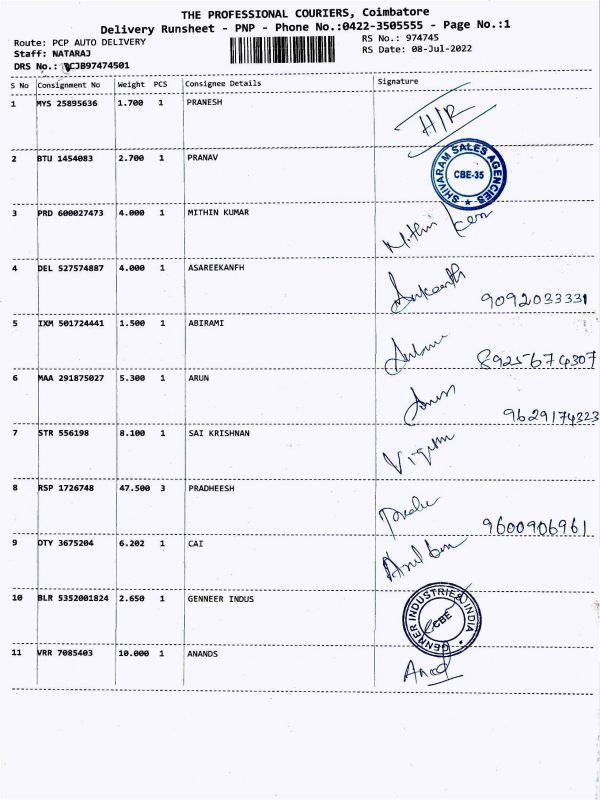 THE PROFESSIONAL COURIERS, Coimbatore
Delivery Runsheet - PNP - Phone No.:0422-3505555 - Page No.:1
Route: PCP AUTO DELIVERY RS No.: 974745
Staff: NATARAJ RS Date: 08-Jul-2022
DRS No.: CJB97474501
S No Consignment No Weight PCS Consignee Details Signature
1 MYS 25895636 1.700 1 PRANESH
H/R
2 BTU 1454083 2.700 1 PRANAV
SHIVARAM SALES AGENCIES
CBE-35
3 PRD 600027473 4.000 1 MITHIN KUMAR
Mithin
4 DEL 527574887 4.000 1 ASAREEKANFH
9092033331
5 IXM 501724441 1.500 1 ABIRAMI
8925674307
6 MAA 291875027 5.300 1 ARUN
9629174323
7 STR 556198 8.100 1 SAI KRISHNAN
8 RSP 1726748 47.500 3 PRADHEESH
9600906961
9 OTY 3675204 6.202 1 CAI
10 BLR 5352001824 2.650 1 GENNEER INDUS
GENRER INDUSTRIES INDIA
CBE
11 VRR 7085403 10.000 1 ANANDS